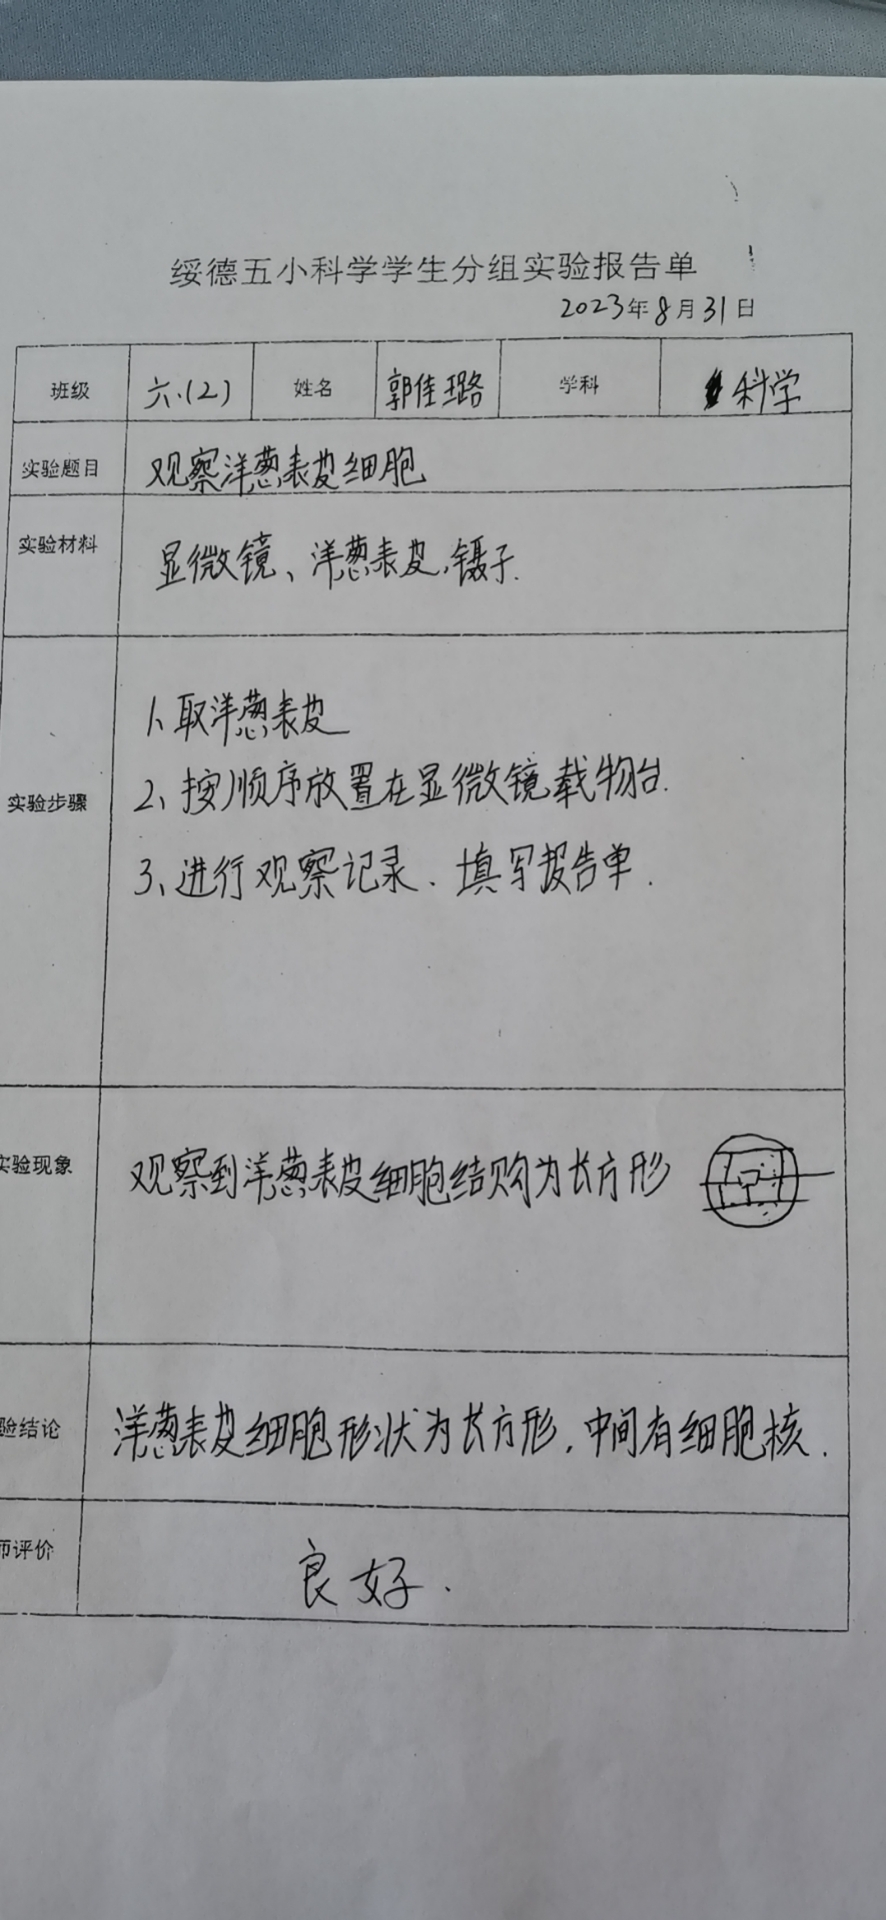 绥德五小科学学生分组实验报告单
2023年8月31日
班级 六.(2) 姓名 郭佳璐 学科 科学
实验题目 观察洋葱表皮细胞
实验材料 显微镜、洋葱表皮,镊子.
实验步骤
1、取洋葱表皮
2、按顺序放置在显微镜载物台.
3、进行观察记录.填写报告单.
实验现象 观察到洋葱表皮细胞结购为长方形
验结论 洋葱表皮细胞形状为长方形,中间有细胞核.
师评价 良好.